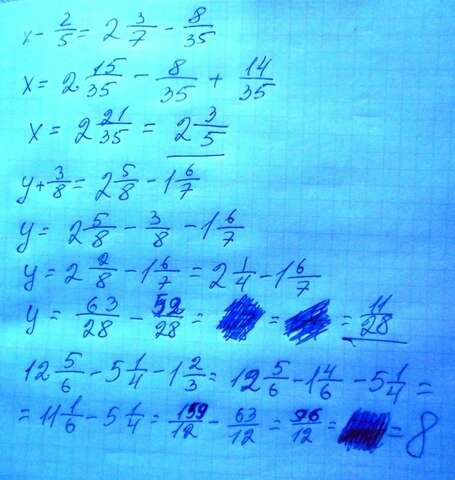 x - 2/5 = 2 3/7 - 8/35
x = 2 15/35 - 8/35 + 14/35
x = 2 21/35 = 2 3/5
y + 3/8 = 2 5/8 - 1 6/7
y = 2 5/8 - 3/8 - 1 6/7
y = 2 2/8 - 1 6/7 = 2 1/4 - 1 6/7
y = 63/28 - 52/28 = = = 11/28
12 5/6 - 5 1/4 - 1 2/3 = 12 5/6 - 1 4/6 - 5 1/4 =
= 11 1/6 - 5 1/4 = 159/12 - 63/12 = 96/12 = = 8